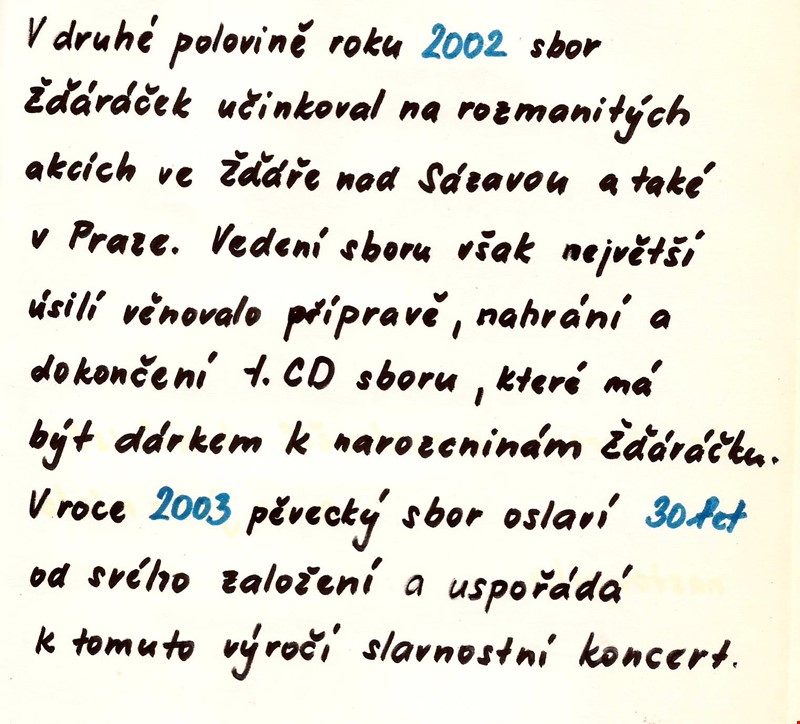 V druhé polovině roku 2002 sbor
Žďáráček učinkoval na rozmanitých
akcích ve Žďáře nad Sázavou a také
v Praze. Vedení sboru však největší
úsilí věnovalo přípravě, nahrání a
dokončení 1. CD sboru, které má
být dárkem k narozeninám Žďáráčku.
V roce 2003 pěvecký sbor oslaví 30 let
od svého založení a uspořádá
k tomuto výročí slavnostní koncert.